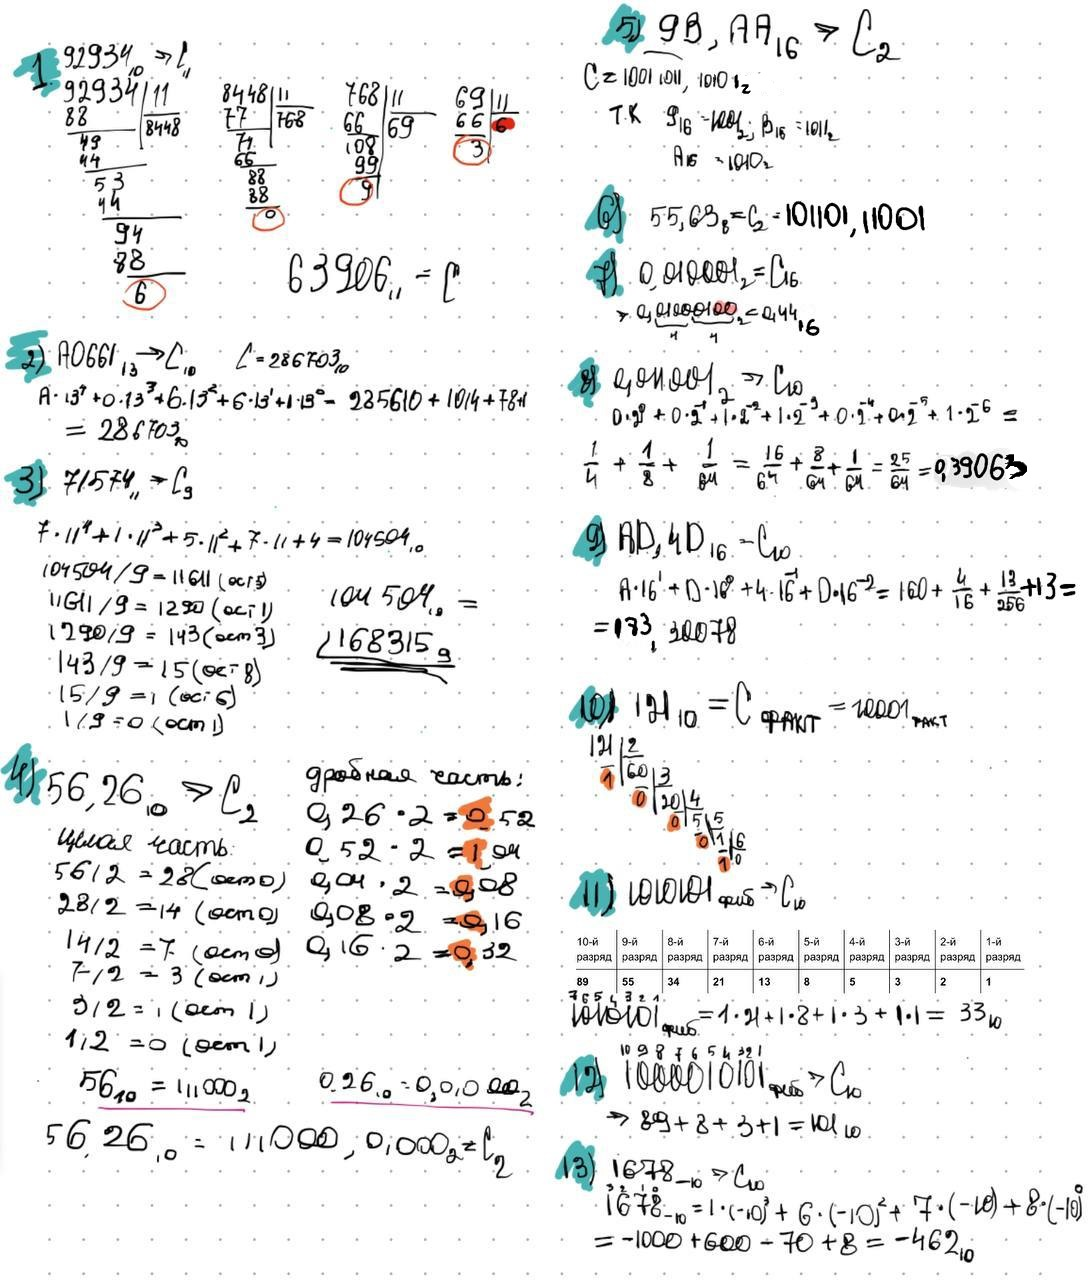 1. 92934₁₀ → C₁₁
92934 | 11
88 | 8448
49
44
53
44
94
88
6
8448 | 11
77 | 768
74
66
88
88
0
768 | 11
66 | 69
108
99
9
69 | 11
66 | 6
3
63906₁₁ = C
2) A0661₁₃ → C₁₀ C = 286703₁₀
A·13⁴+0·13³+6·13²+6·13¹+1·13⁰ = 285610+1014+78+1
= 286703₁₀
3) 71574₁₁ → C₉
7·11⁴+1·11³+5·11²+7·11+4=104504₁₀
104504/9=11611 (ост5)
11611/9=1290 (ост1)
1290/9=143 (ост3)
143/9=15 (ост8)
15/9=1 (ост6)
1/9=0 (ост1)
104504₁₀ =
168315₉
4) 56,26₁₀ → C₂
целая часть:
56/2=28 (ост0)
28/2=14 (ост0)
14/2=7 (ост0)
7/2=3 (ост1)
3/2=1 (ост1)
1/2=0 (ост1)
дробная часть:
0,26·2=0,52
0,52·2=1,04
0,04·2=0,08
0,08·2=0,16
0,16·2=0,32
56₁₀ = 111000₂
0,26₁₀ = 0,01000₂
56,26₁₀ = 111000,01000₂ = C₂
5) 9B,AA₁₆ → C₂
C = 10011011,10101₂
Т.К 9₁₆ = 1001₂; B₁₆ = 1011₂
A₁₆ = 1010₂
6) 55,63₈ = C₂ = 101101,11001
7) 0,010001₂ = C₁₆
→ 0,01000100₂ = 0,44₁₆
4 4
8) 0,011001₂ → C₁₀
0·2⁰+0·2⁻¹+1·2⁻²+1·2⁻³+0·2⁻⁴+0·2⁻⁵+1·2⁻⁶ =
1/4 + 1/8 + 1/64 = 16/64 + 8/64 + 1/64 = 25/64 = 0,39063
9) AD,4D₁₆ = C₁₀
A·16¹+D·16⁰+4·16⁻¹+D·16⁻² = 160 + 4/16 + 13/256 +13=
= 173,30078
10) 121₁₀ = C ФАКТ = 10001 ФАКТ
121 | 2
1 | 60 | 3
0 | 20 | 4
0 | 5 | 5
0 | 1 | 6
1 | 0
11) 1010101 фиб → C₁₀
10-й разряд 9-й разряд 8-й разряд 7-й разряд 6-й разряд 5-й разряд 4-й разряд 3-й разряд 2-й разряд 1-й разряд
89 55 34 21 13 8 5 3 2 1
7 6 5 4 3 2 1
1010101 фиб = 1·21+1·8+1·3+1·1= 33₁₀
10 9 8 7 6 5 4 3 2 1
12) 1000010101 фиб → C₁₀
→ 89+8+3+1=101₁₀
13) 1678₋₁₀ → C₁₀
3 2 1 0
1678₋₁₀=1·(-10)³+6·(-10)²+7·(-10)+8·(-10)⁰
= -1000+600-70+8 = -462₁₀